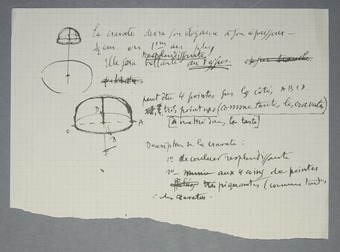 La cravate devra son élégance à son épaisseur —
1/2 cm ou 1cm au plus
Elle sera resplendissante
brillante au
peut être 4 pointes sur les côtés A B C D
très pointues (comme toute les cravates
A mettre dans le texte
B
D
C
A
Description de la cravate :
1° de couleur resplendissante
2° aux 4 coins de pointes
très piquantes (comme toutes
les cravates